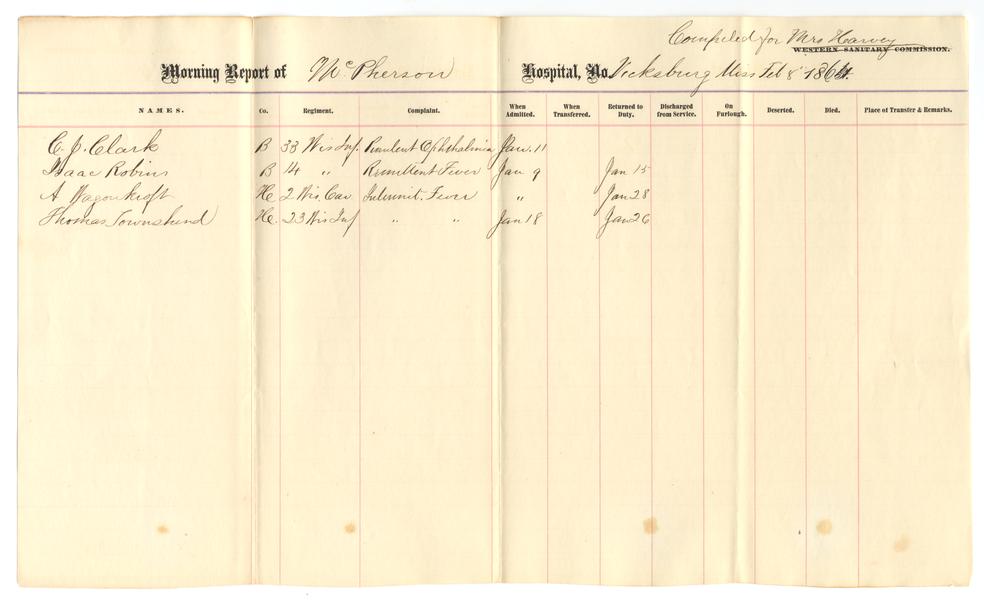 Compiled for Mrs Harvey
WESTERN SANITARY COMMISSION.
Morning Report of McPherson Hospital, No. Vicksburg Miss Feb 8 1864.
NAMES. Co. Regiment. Complaint. When Admitted. When Transferred. Returned to Duty. Discharged from Service. On Furlough. Deserted. Died. Place of Transfer & Remarks.
C. J. Clark B 33 Wis Inf. Purulent Ophthalmia Jan. 11
Isaac Robins B 14 " Remittent Fever Jan 9 Jan 15
A 2 Wis. Cav Intermit. Fever " Jan 28
Thomas Townshend 23 Wis Inf " " Jan 18 Jan 26